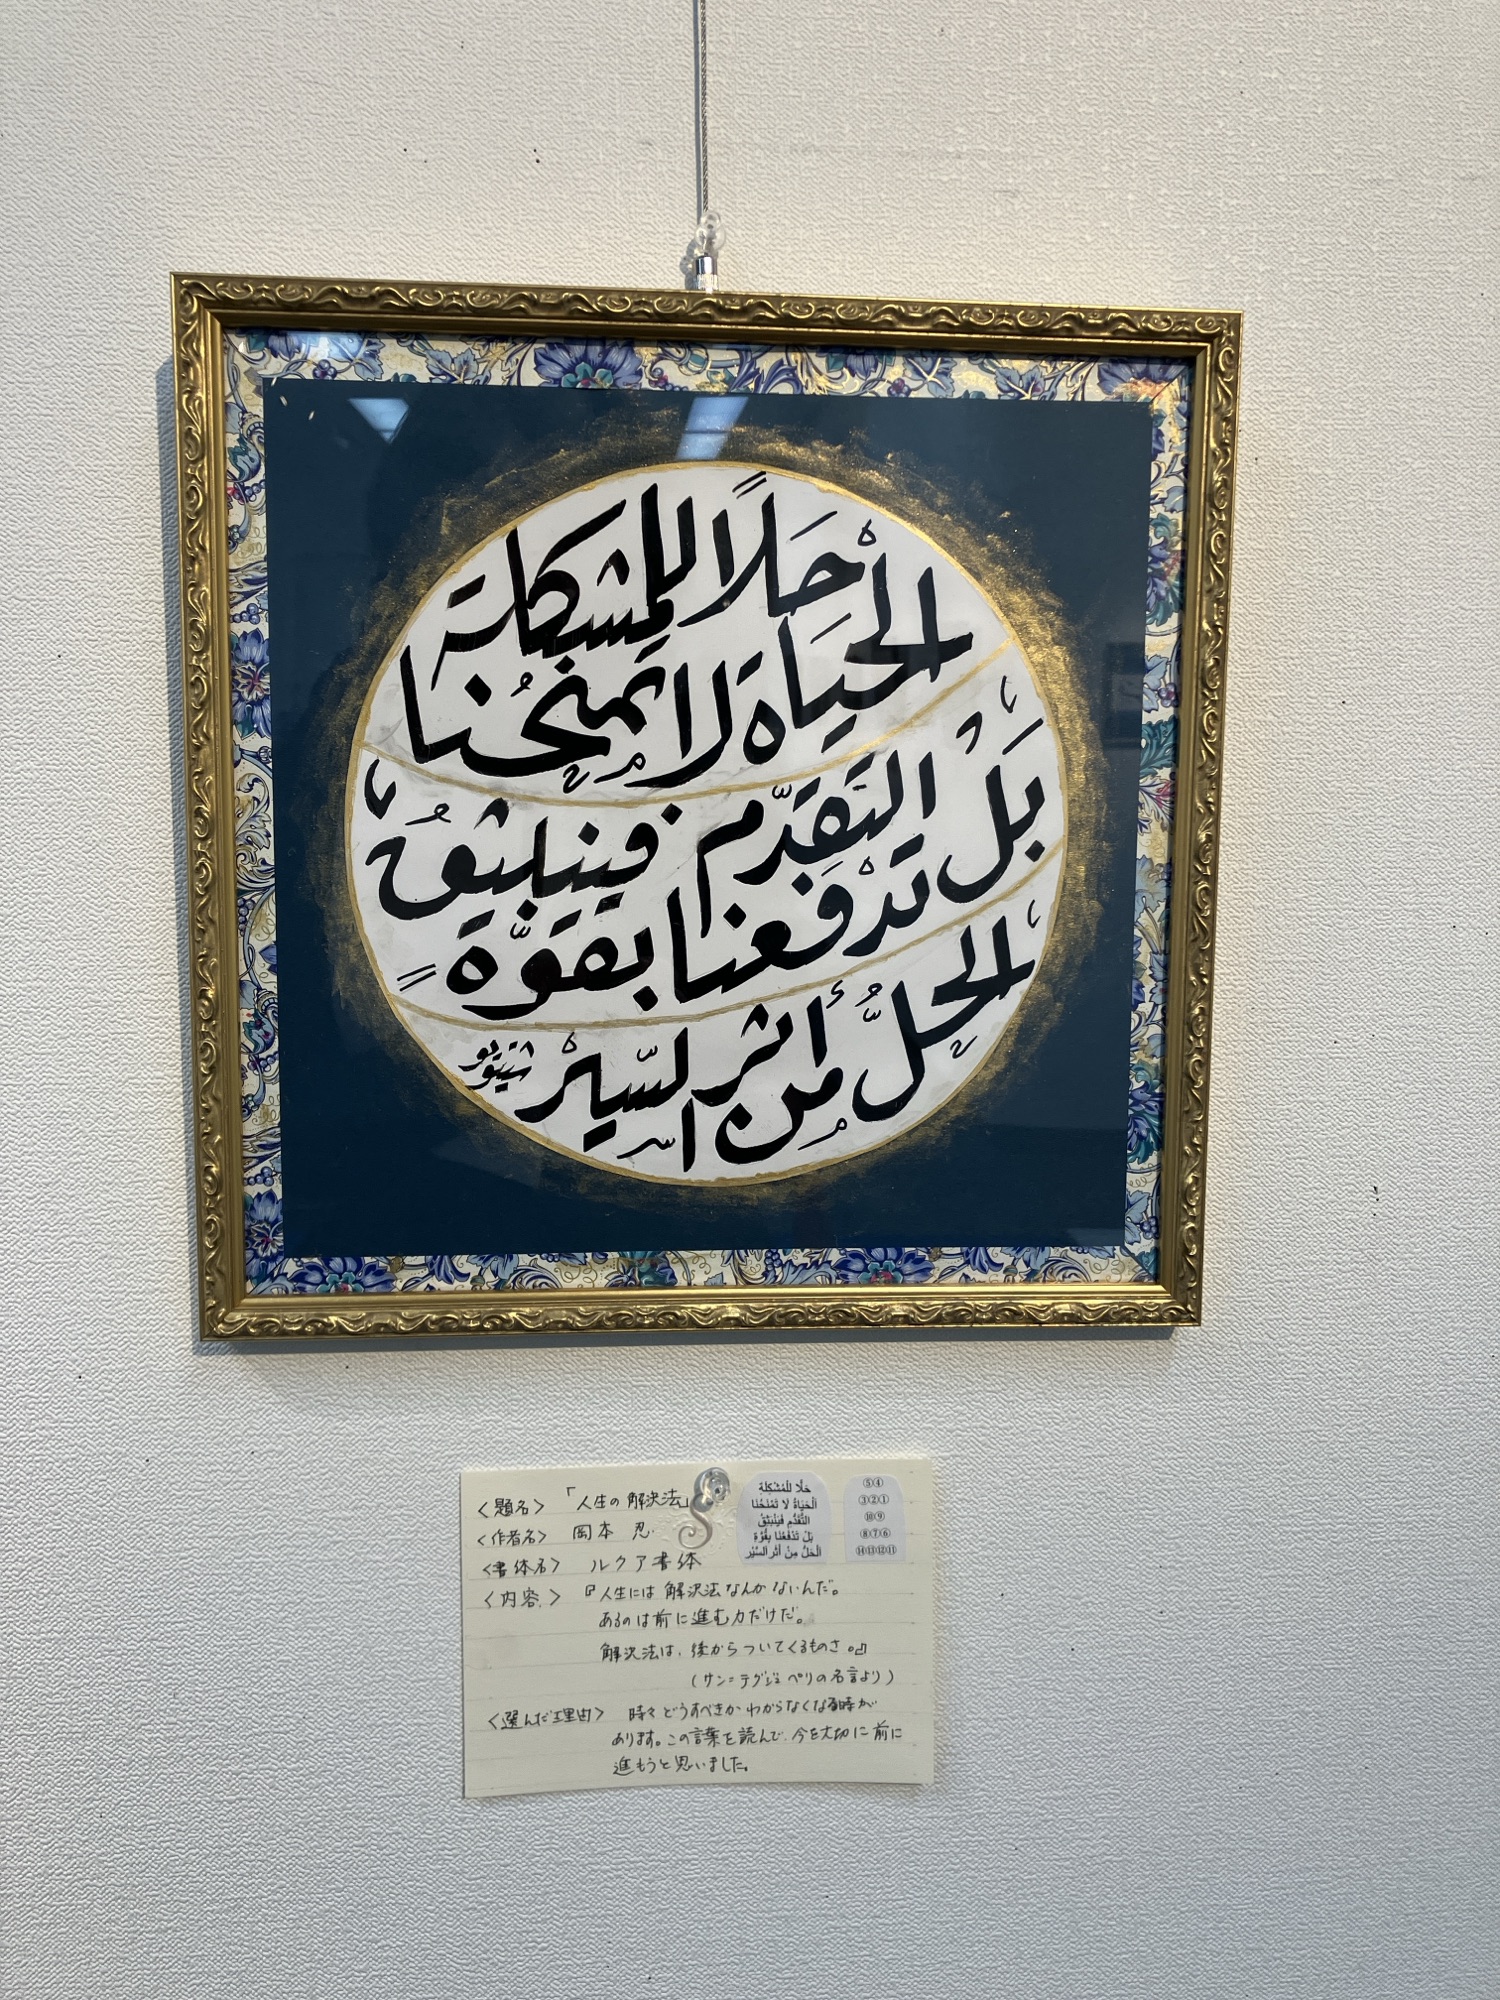 حَلًّا لِلْمُشكلة
الْحَيَاة لا تمنحُنا
التَقَدّم فينبثِقُ
بَلْ تدْفعنا بقوَّةٍ
الحلُّ مِن أثر السّيرْ
<題名> 「人生の解決法」
<作者名> 岡本 忍
<書体名> ルクア書体
<内容> 『人生には解決法なんかないんだ。
あるのは前に進む力だけだ。
解決法は、後からついてくるものさ。』
(サン=テグジュペリの名言より)
<選んだ理由> 時々どうすべきかわからなくなる時が
あります。この言葉を読んで、今を大切に前に
進もうと思いました。
حَلًّا لِلْمُشْكِلَةِ
الْحَيَاةُ لَا تَمْنَحُنَا
التَّقَدُّمِ فَيَنْبَثِقُ
بَلْ تَدْفَعُنَا بِقُوَّةٍ
الْحَلُّ مِنْ أَثَرِ السَّيْرِ
⑤④
③②①
⑩⑨
⑧⑦⑥
⑭⑬⑫⑪